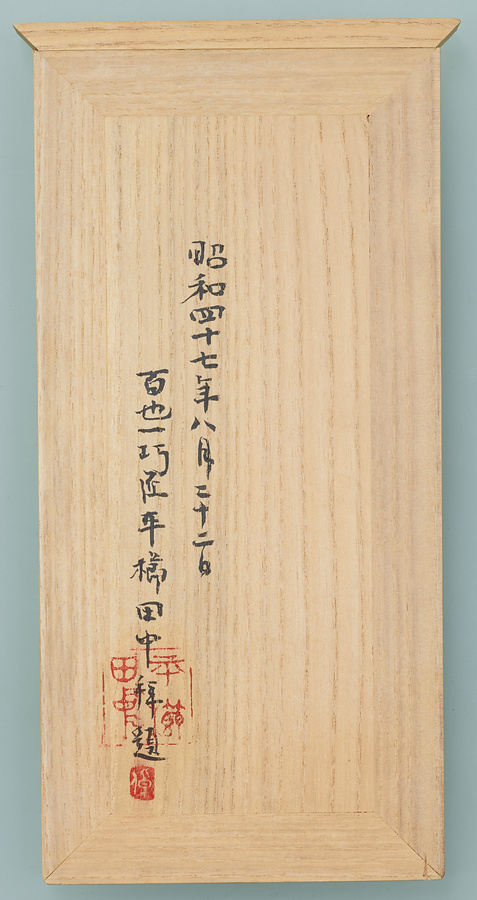 昭和四十七年八月二十二日
百也一巧匠平櫛田中拝題
平櫛
田中